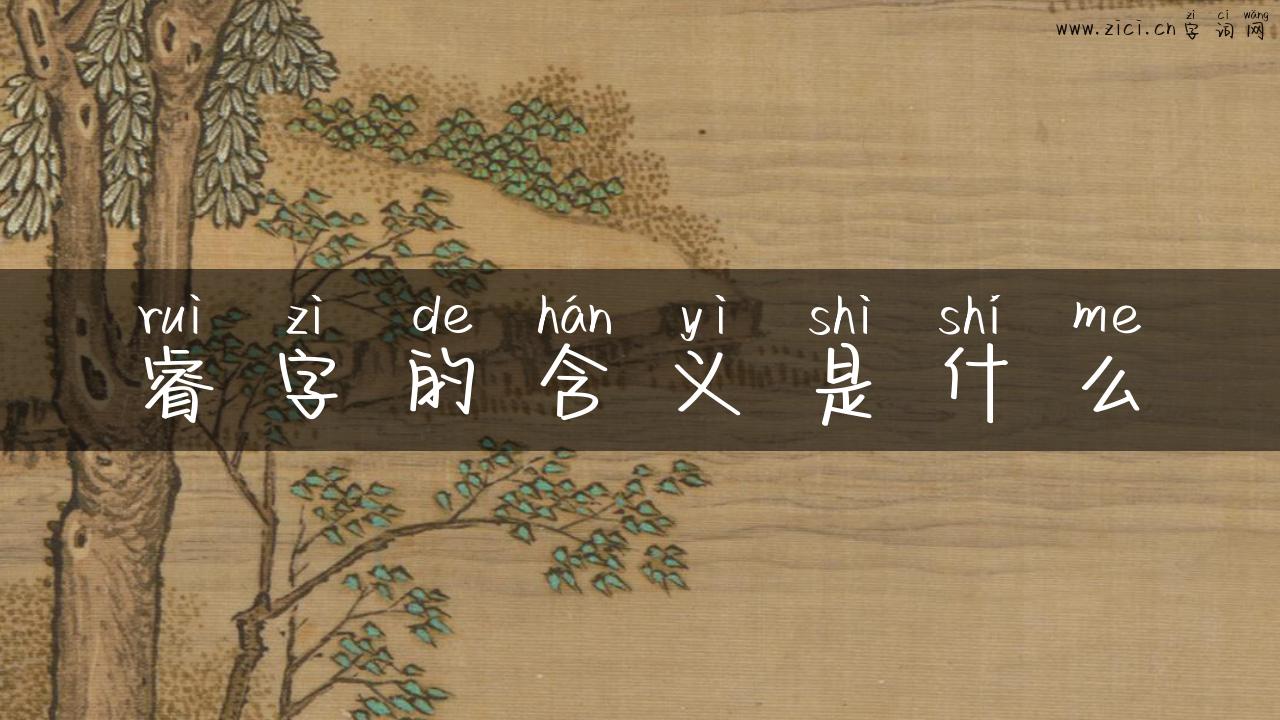 zì cí wǎng
www.zici.cn 字词网
ruì zì de hán yì shì shí me
睿字的含义是什么